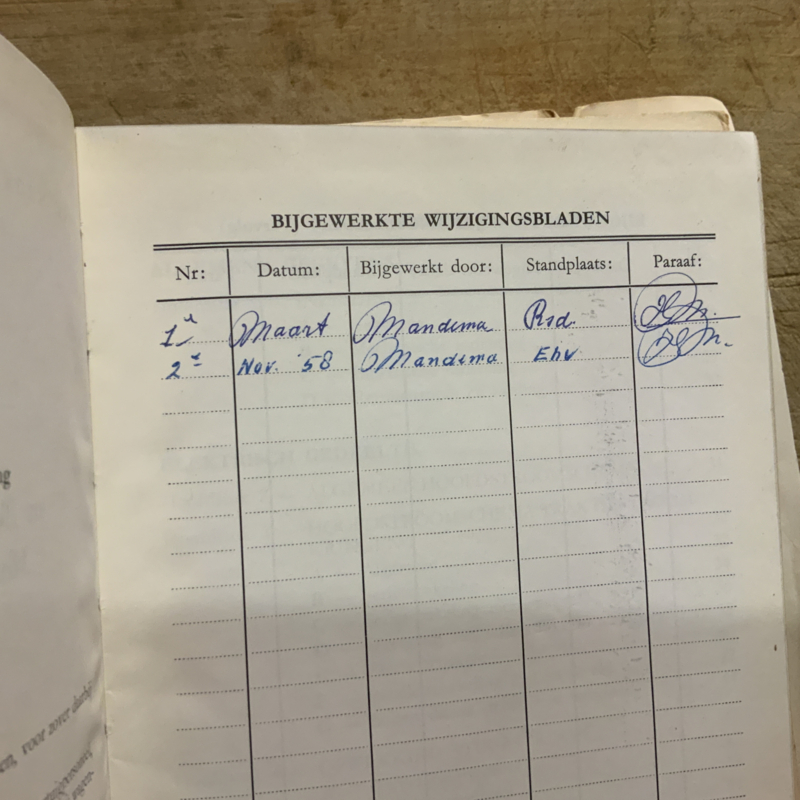 BIJGEWERKTE WIJZIGINGSBLADEN
Nr: Datum: Bijgewerkt door: Standplaats: Paraaf:
1e Maart Mandema Rsd.
2e Nov. '58 Mandema Ehv
en, voor zover daarbij